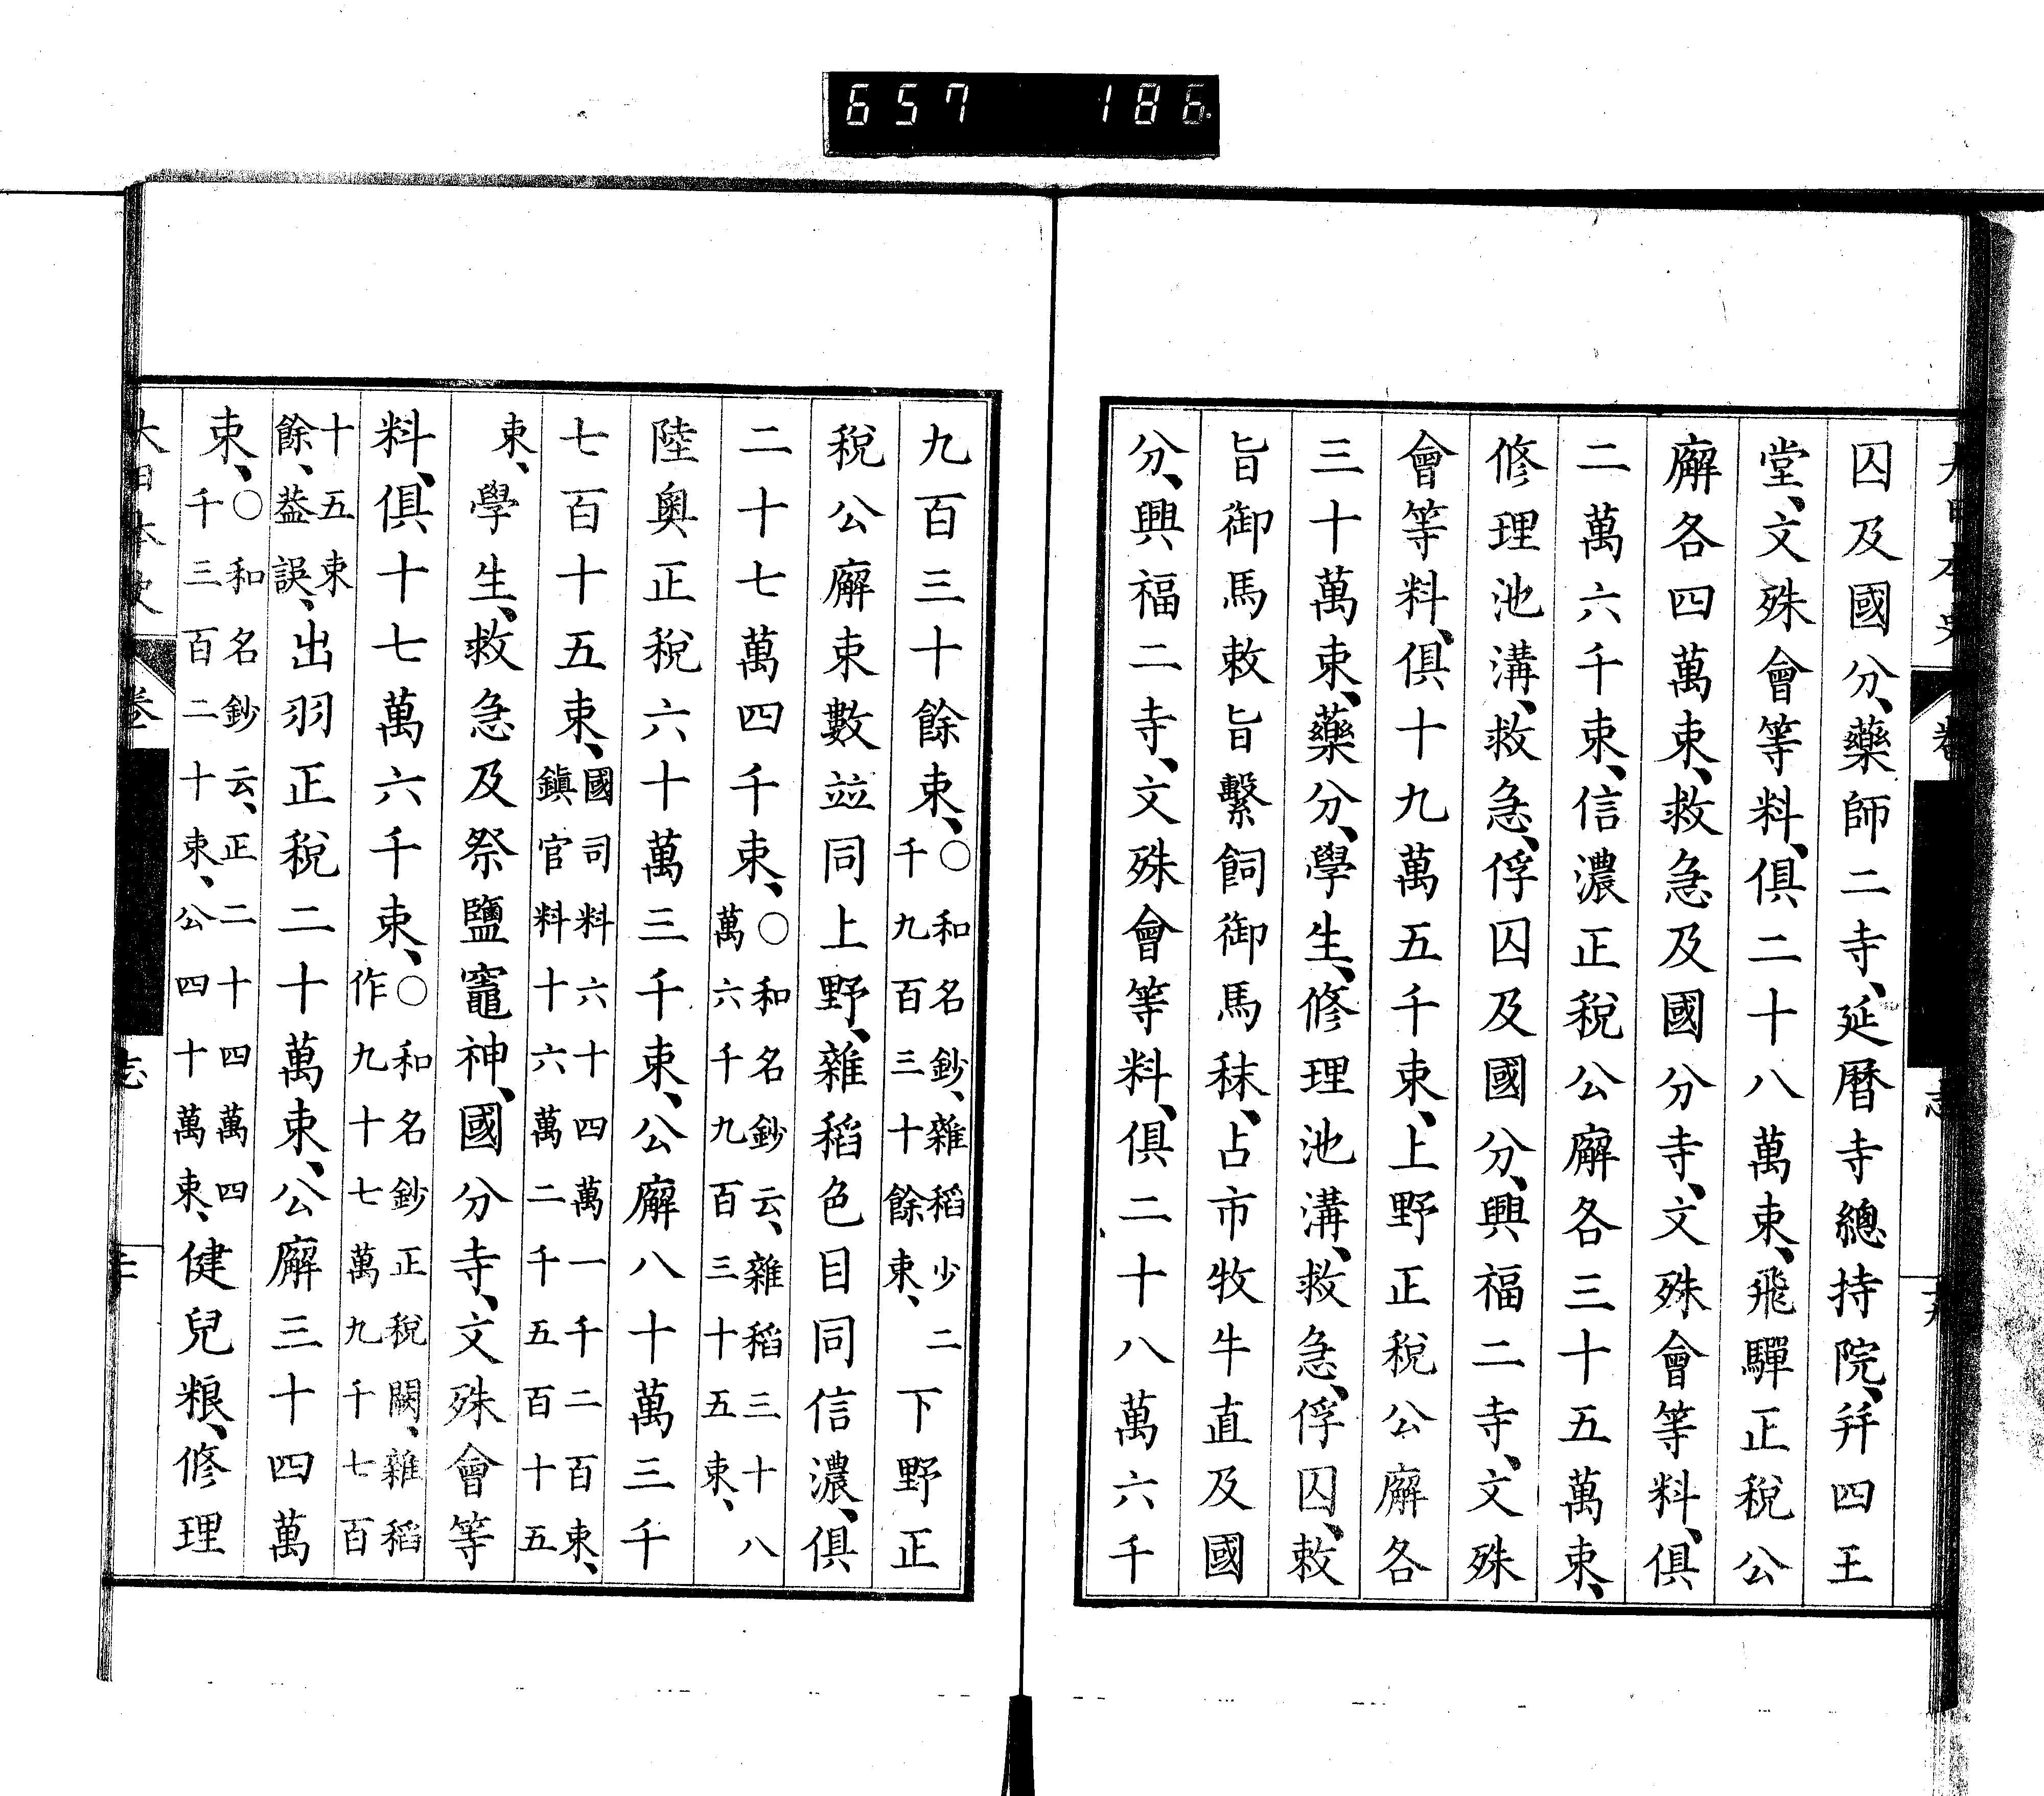 657 186
囚及國分、藥師二寺、延曆寺總持院、幷四王
堂、文殊會等料、俱二十八萬束、飛驒正稅公
廨各四萬束、救急及國分寺、文殊會等料、俱
二萬六千束、信濃正稅公廨各三十五萬束、
修理池溝、救急、俘囚及國分、興福二寺、文殊
會等料、俱十九萬五千束、上野正稅公廨各
三十萬束、藥分、學生、修理池溝、救急、俘囚、敕
旨御馬敕旨繫飼御馬秣、占市牧牛直及國
分、興福二寺、文殊會等料、俱二十八萬六千
九百三十餘束、○和名鈔、雜稻少二千九百三十餘束、下野正
稅公廨束數竝同上野、雜稻色目同信濃、俱
二十七萬四千束、○和名鈔云、雜稻三十八萬六千九百三十五束、
陸奧正稅六十萬三千束、公廨八十萬三千
七百十五束、國司料六十四萬一千二百束、鎭官料十六萬二千五百十五
束、學生、救急及祭鹽竈神、國分寺、文殊會等
料、俱十七萬六千束、○和名鈔正稅闕、雜稻作九十七萬九千七百
十五束餘、葢誤、出羽正稅二十萬束、公廨三十四萬
束、○和名鈔云、正二十四萬四千三百二十束、公四十萬束、健兒粮、修理
大日本史 卷 志